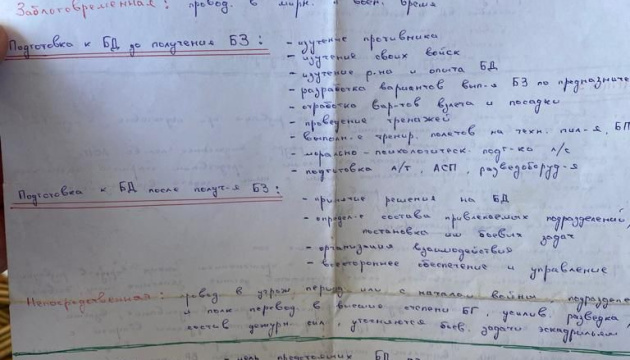 Заблаговременная: провод. в мирн. и воен. время
Подготовка к БД до получения БЗ:
- изучение противника
- изучение своих войск
- изучение р-на и опыта БД
- разработка вариантов вып-я БЗ по предназначе
- отработка вар-тов взлета и посадки
- проведение тренажей
- выполн-е тренир. полетов на техн. пил-я, БП
- морально-психологическ. подг-ка л/с
- подготовка л/т, АСП, разведоборуд-я
Подготовка к БД после получ-я БЗ:
- принятие решения на БД
- определ-е состава привлекаемых подразделений,
постановка им боевых задач
- организация взаимодействия
- всестороннее обеспечение и управление
Непосредственная: провод. в угрож. период или с началом войны, подразделе
и полк перевод. в высшие степени БГ, усилив. разведка,
состав дежурн. сил, уточняются боев. задачи эскадрильям
- цель предстоящих БД